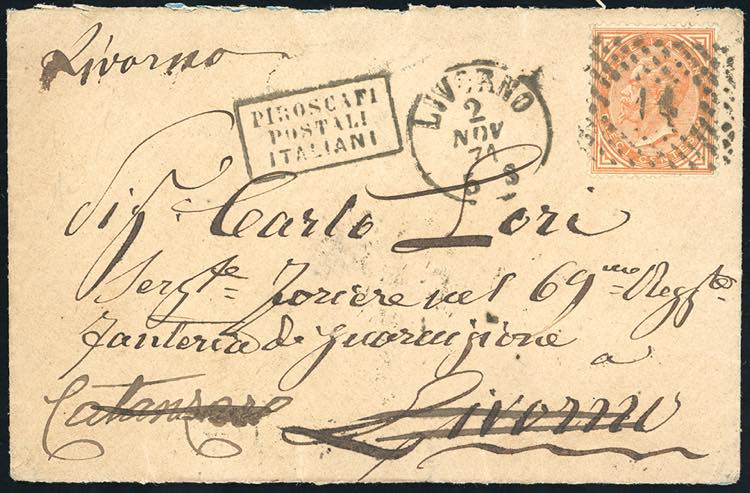 Livorno
PIROSCAFI
POSTALI
ITALIANI
LIVORNO
2
NOV
71
14
Sig. Carlo Lori
Serg.te Foriere nel 69.mo Regg.to
fanteria di guarnigione
a
Catanzaro
Livorno